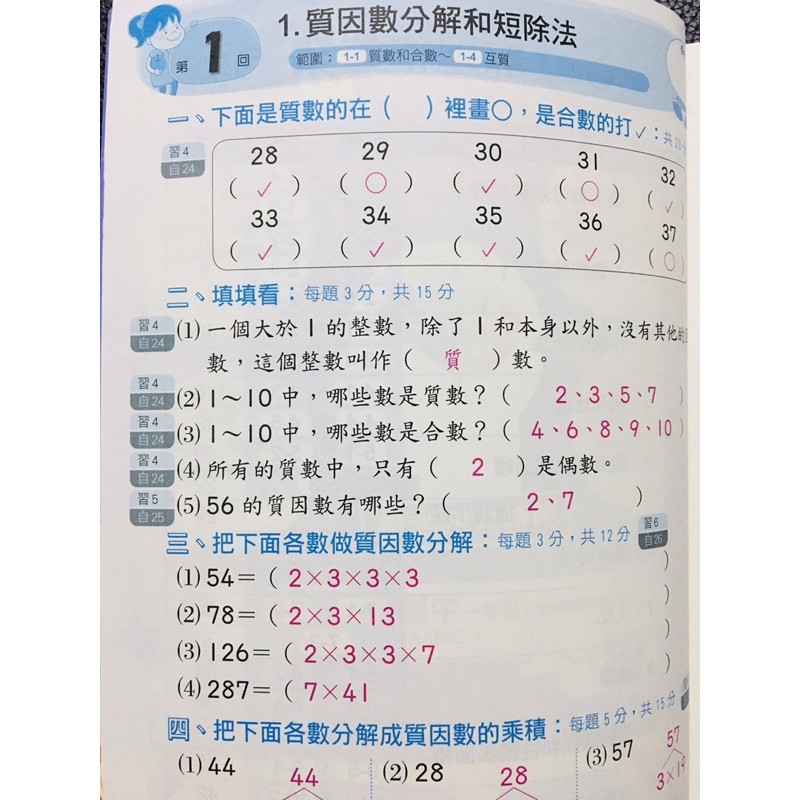 第1回
1.質因數分解和短除法
範圍：1-1 質數和合數～1-4 互質
一、下面是質數的在（ ）裡畫○，是合數的打✓：共20分
習4
自24
28 29 30 31 32
（✓）（○）（✓）（○）（✓）
33 34 35 36 37
（✓）（✓）（✓）（✓）（○）
二、填填看：每題3分，共15分
習4
自24
(1)一個大於1的整數，除了1和本身以外，沒有其他的因
數，這個整數叫作（ 質 ）數。
習4
自24
(2)1～10中，哪些數是質數？（ 2、3、5、7 ）
習4
自24
(3)1～10中，哪些數是合數？（ 4、6、8、9、10 ）
習4
自24
(4)所有的質數中，只有（ 2 ）是偶數。
習5
自25
(5)56的質因數有哪些？（ 2、7 ）
三、把下面各數做質因數分解：每題3分，共12分
習6
自26
(1)54=（ 2×3×3×3 ）
(2)78=（ 2×3×13 ）
(3)126=（ 2×3×3×7 ）
(4)287=（ 7×41 ）
四、把下面各數分解成質因數的乘積：每題5分，共15分
(1)44 44 (2)28 28 (3)57 57
3×19